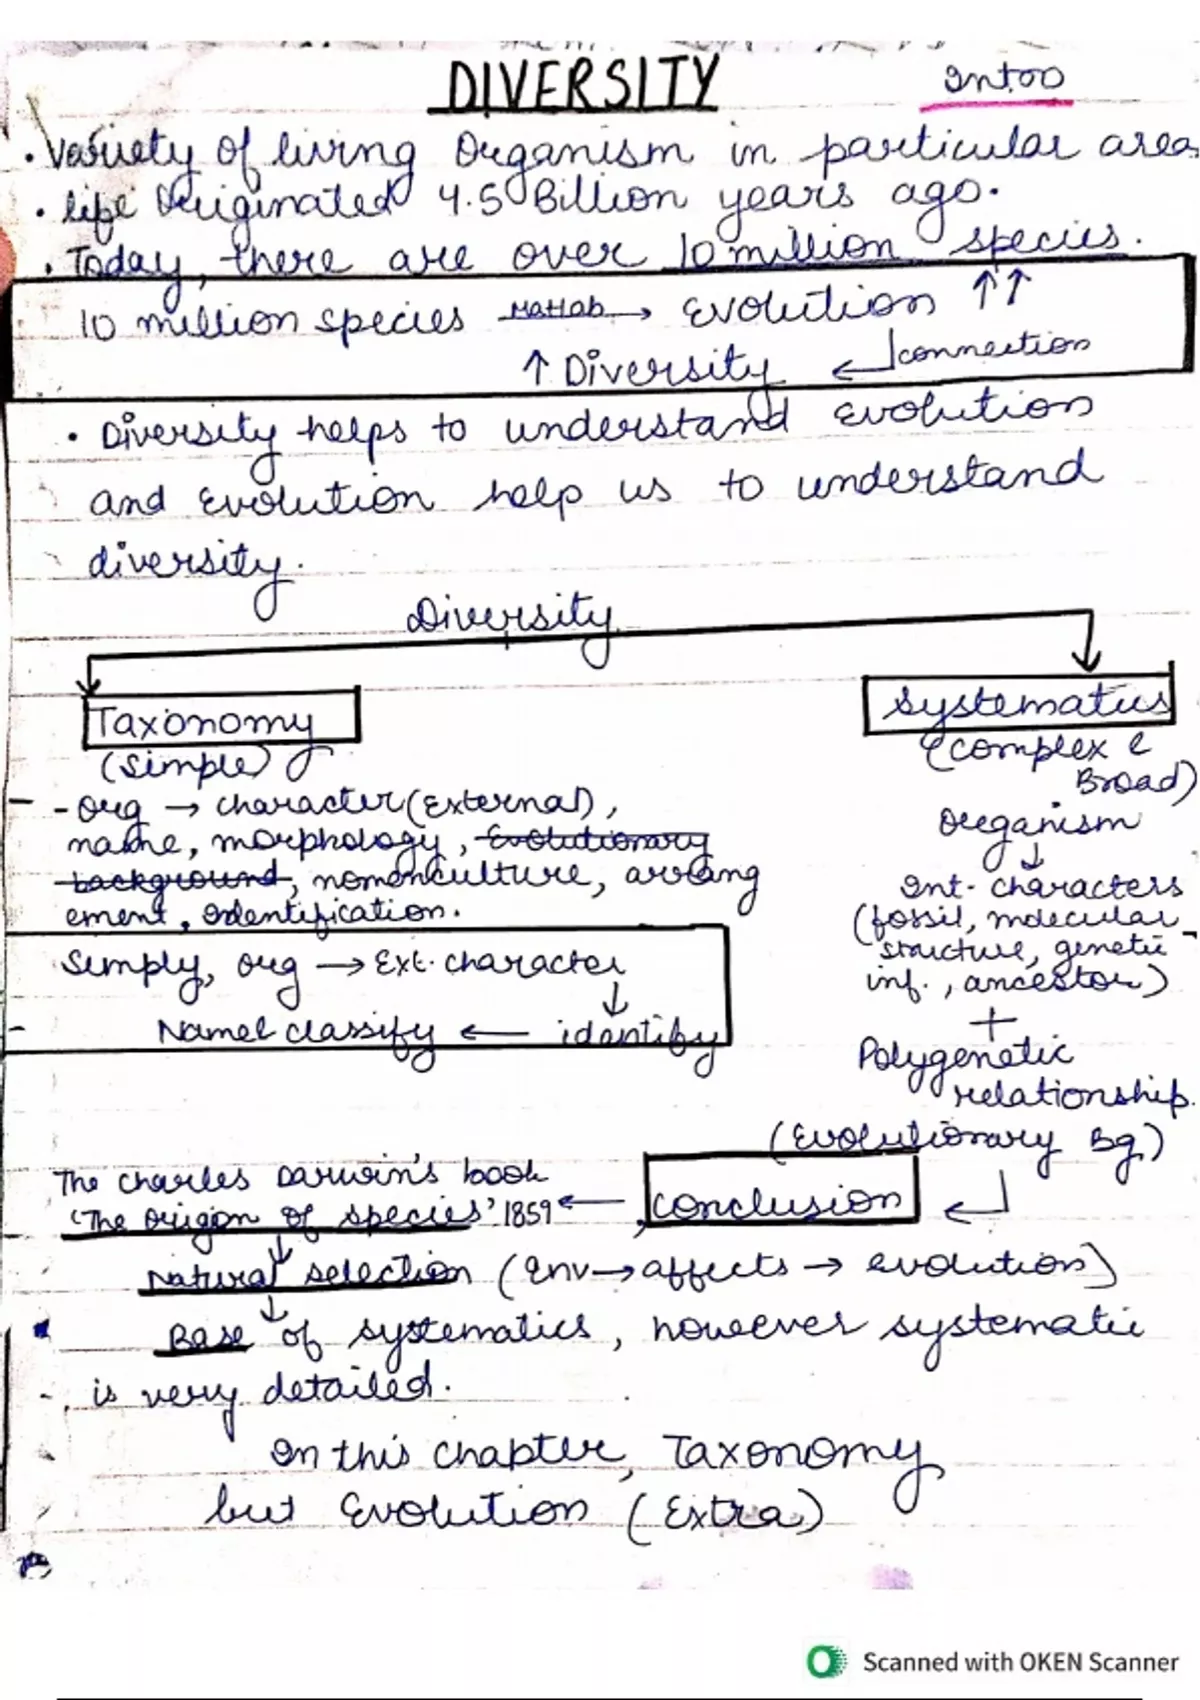 DIVERSITY
Intro
• Variety of living Organism in particular area
• life Originated 4.5 Billion years ago.
• Today, there are over 10 million species.
10 million species Matlab → Evolution ↑↑
↑ Diversity ← connection
• Diversity helps to understand evolution
and Evolution help us to understand
diversity.
Diversity
Taxonomy
(Simple)
- Org → character (External),
name, morphology, Evolutionary
background, nomenculture, arrang
ement, Identification.
Simply, org → Ext. character
↓
Name & classify ← identify
Systematics
(complex &
Broad)
Organism
↓
Int. characters
(fossil, molecular
structure, genetic
inf., ancestor)
+
Polygenetic
relationship.
(Evolutionary Bg)
The Charles Darwin's book
'The Origon of species' 1859 ← conclusion ←
↓
Natural selection (Env → affects → evolution)
↓
Base of systematics, however systematic
is very detailed.
In this chapter, Taxonomy
but Evolution (Extra)
Scanned with OKEN Scanner